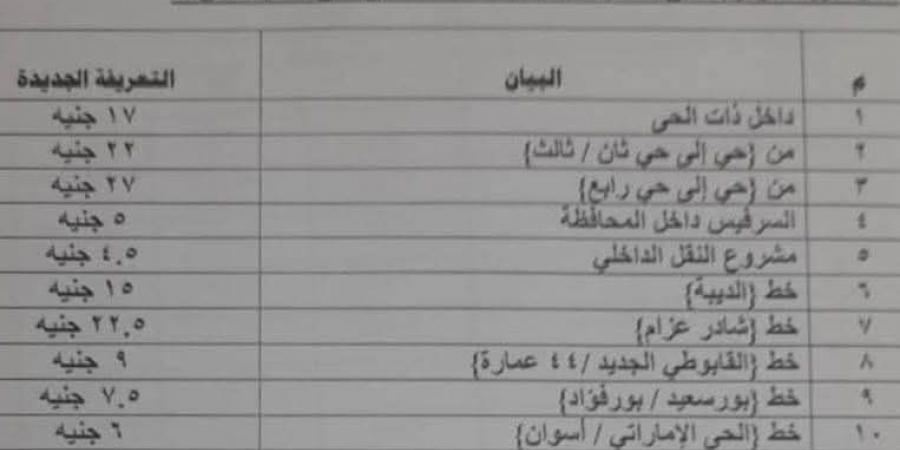 م البيان التعريفة الجديدة
١ داخل ذات الحى ١٧ جنيه
٢ من {حي إلى حي ثان / ثالث} ٢٢ جنيه
٣ من {حي إلى حي رابع} ٢٧ جنيه
٤ السرفيس داخل المحافظة ٥ جنيه
٥ مشروع النقل الداخلي ٤.٥ جنيه
٦ خط {الديبة} ١٥ جنيه
٧ خط {شادر عزام} ٢٢.٥ جنيه
٨ خط {القابوطي الجديد / ٤٤ عمارة} ٩ جنيه
٩ خط {بورسعيد / بورفؤاد} ٧.٥ جنيه
١٠ خط {الحي الإماراتي / أسوان} ٦ جنيه